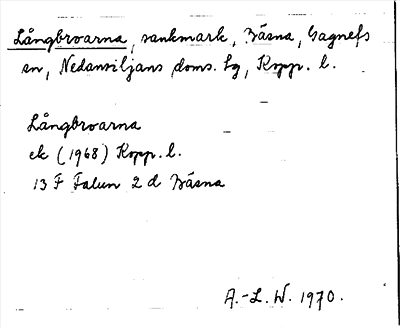 Långbroarna, sankmark, Bäsna, Gagnefs
sn, Nedansiljans doms. lg, Kopp. l.
Långbroarna
ek (1968) Kopp. l.
13 F Falun 2 d Bäsna
A.-L. W. 1970.